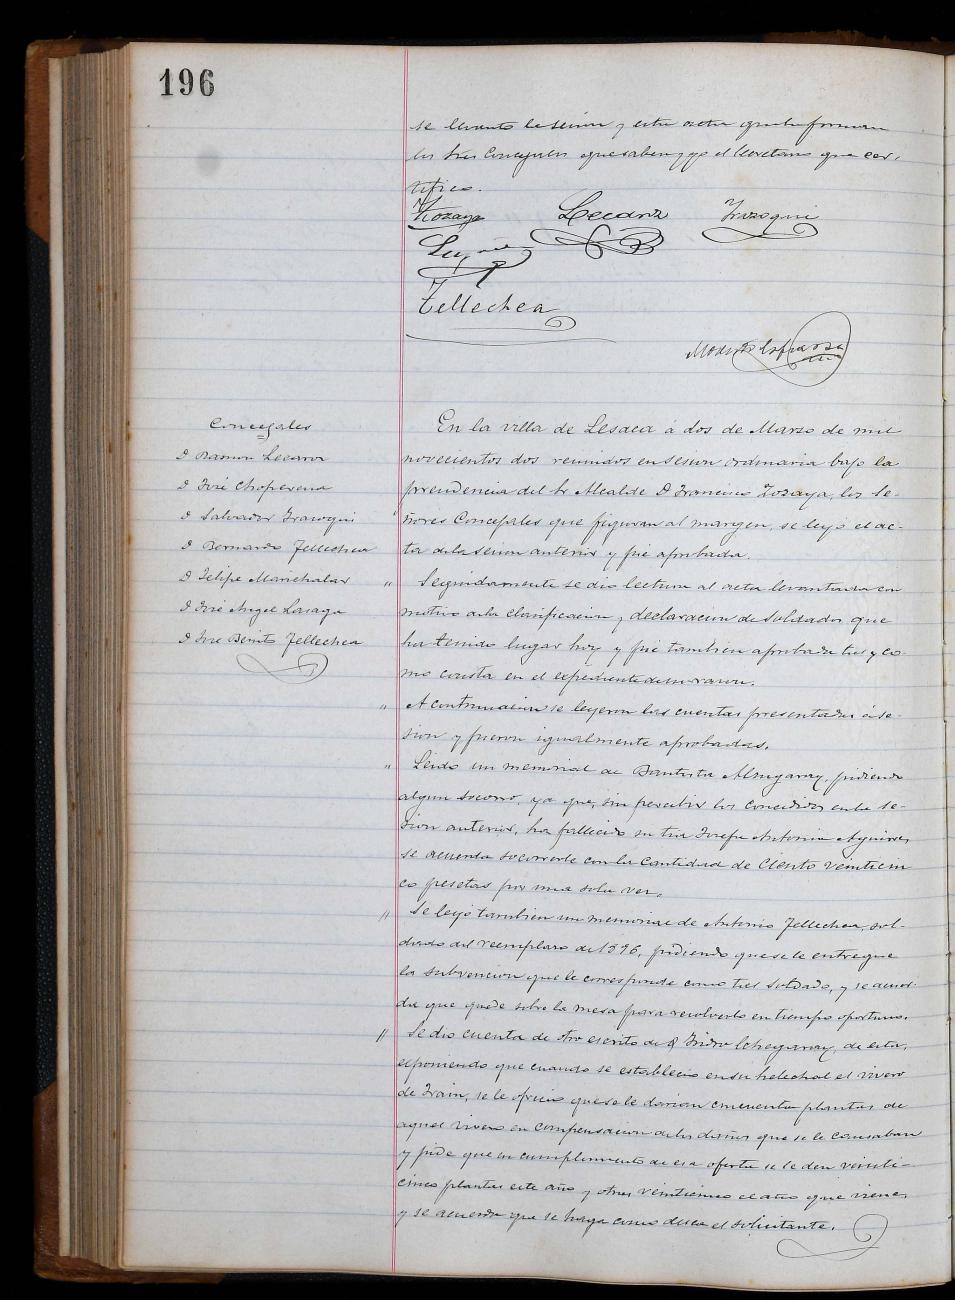 196
se levantó la sesion y esta acta que la forman
los tres Concejales que saben y yo el Secretario que cer-
tifico.
Zozaya Lecaroz Irazoqui
Tellechea
En la villa de Lesaca á dos de Marzo de mil
novecientos dos reunidos en sesion ordinaria bajo la
presidencia del Sr Alcalde D Francisco Zozaya, los Se-
ñores Concejales que figuran al margen, se leyó el ac-
ta de la sesion anterior y fué aprobada.
Concejales
D Ramon Lecaroz
D José Choperena
D Salvador Irazoqui
D Bernardo Tellechea
D Felipe Marichalar
D José Angel Lasaga
D José Benito Tellechea
" Seguidamente se dio lectura al acta levantada con
motivo de la clasificacion y declaracion de Soldados que
ha tenido lugar hoy y fué tambien aprobada tal y co-
mo consta en el expediente de su razon.
" A continuacion se leyeron las cuentas presentadas á se-
sion y fueron igualmente aprobadas.
" Leido un memorial de Bautista Almgaray, pidiendo
algun socorro, ya que, sin percibir los concedidos en la se-
sion anterior, ha fallecido su tia Josefa Antonia Aguirre,
se acuerda socorrerle con la cantidad de Ciento veinticin
co pesetas por una sola vez.
" Se leyó tambien un memorial de Antonio Tellechea, sol-
dado del reemplazo de 1896, pidiendo que se le entregue
la subvencion que le corresponde como tal soldado, y se acuer-
da que quede sobre la mesa para resolverlo en tiempo oportuno.
" Se dió cuenta de otro escrito de D Isidro Echegaray, de esta,
exponiendo que cuando se estableció en su helechal el vivero
de Irain, se le ofreció que se le darian cincuenta plantas de
aquel vivero en compensacion de los daños que se le causaban
y pide que en cumplimiento de esa oferta se le den veinti-
cinco plantas este año y otras veinticinco el año que viene,
y se acuerda que se haga como desea el solicitante.